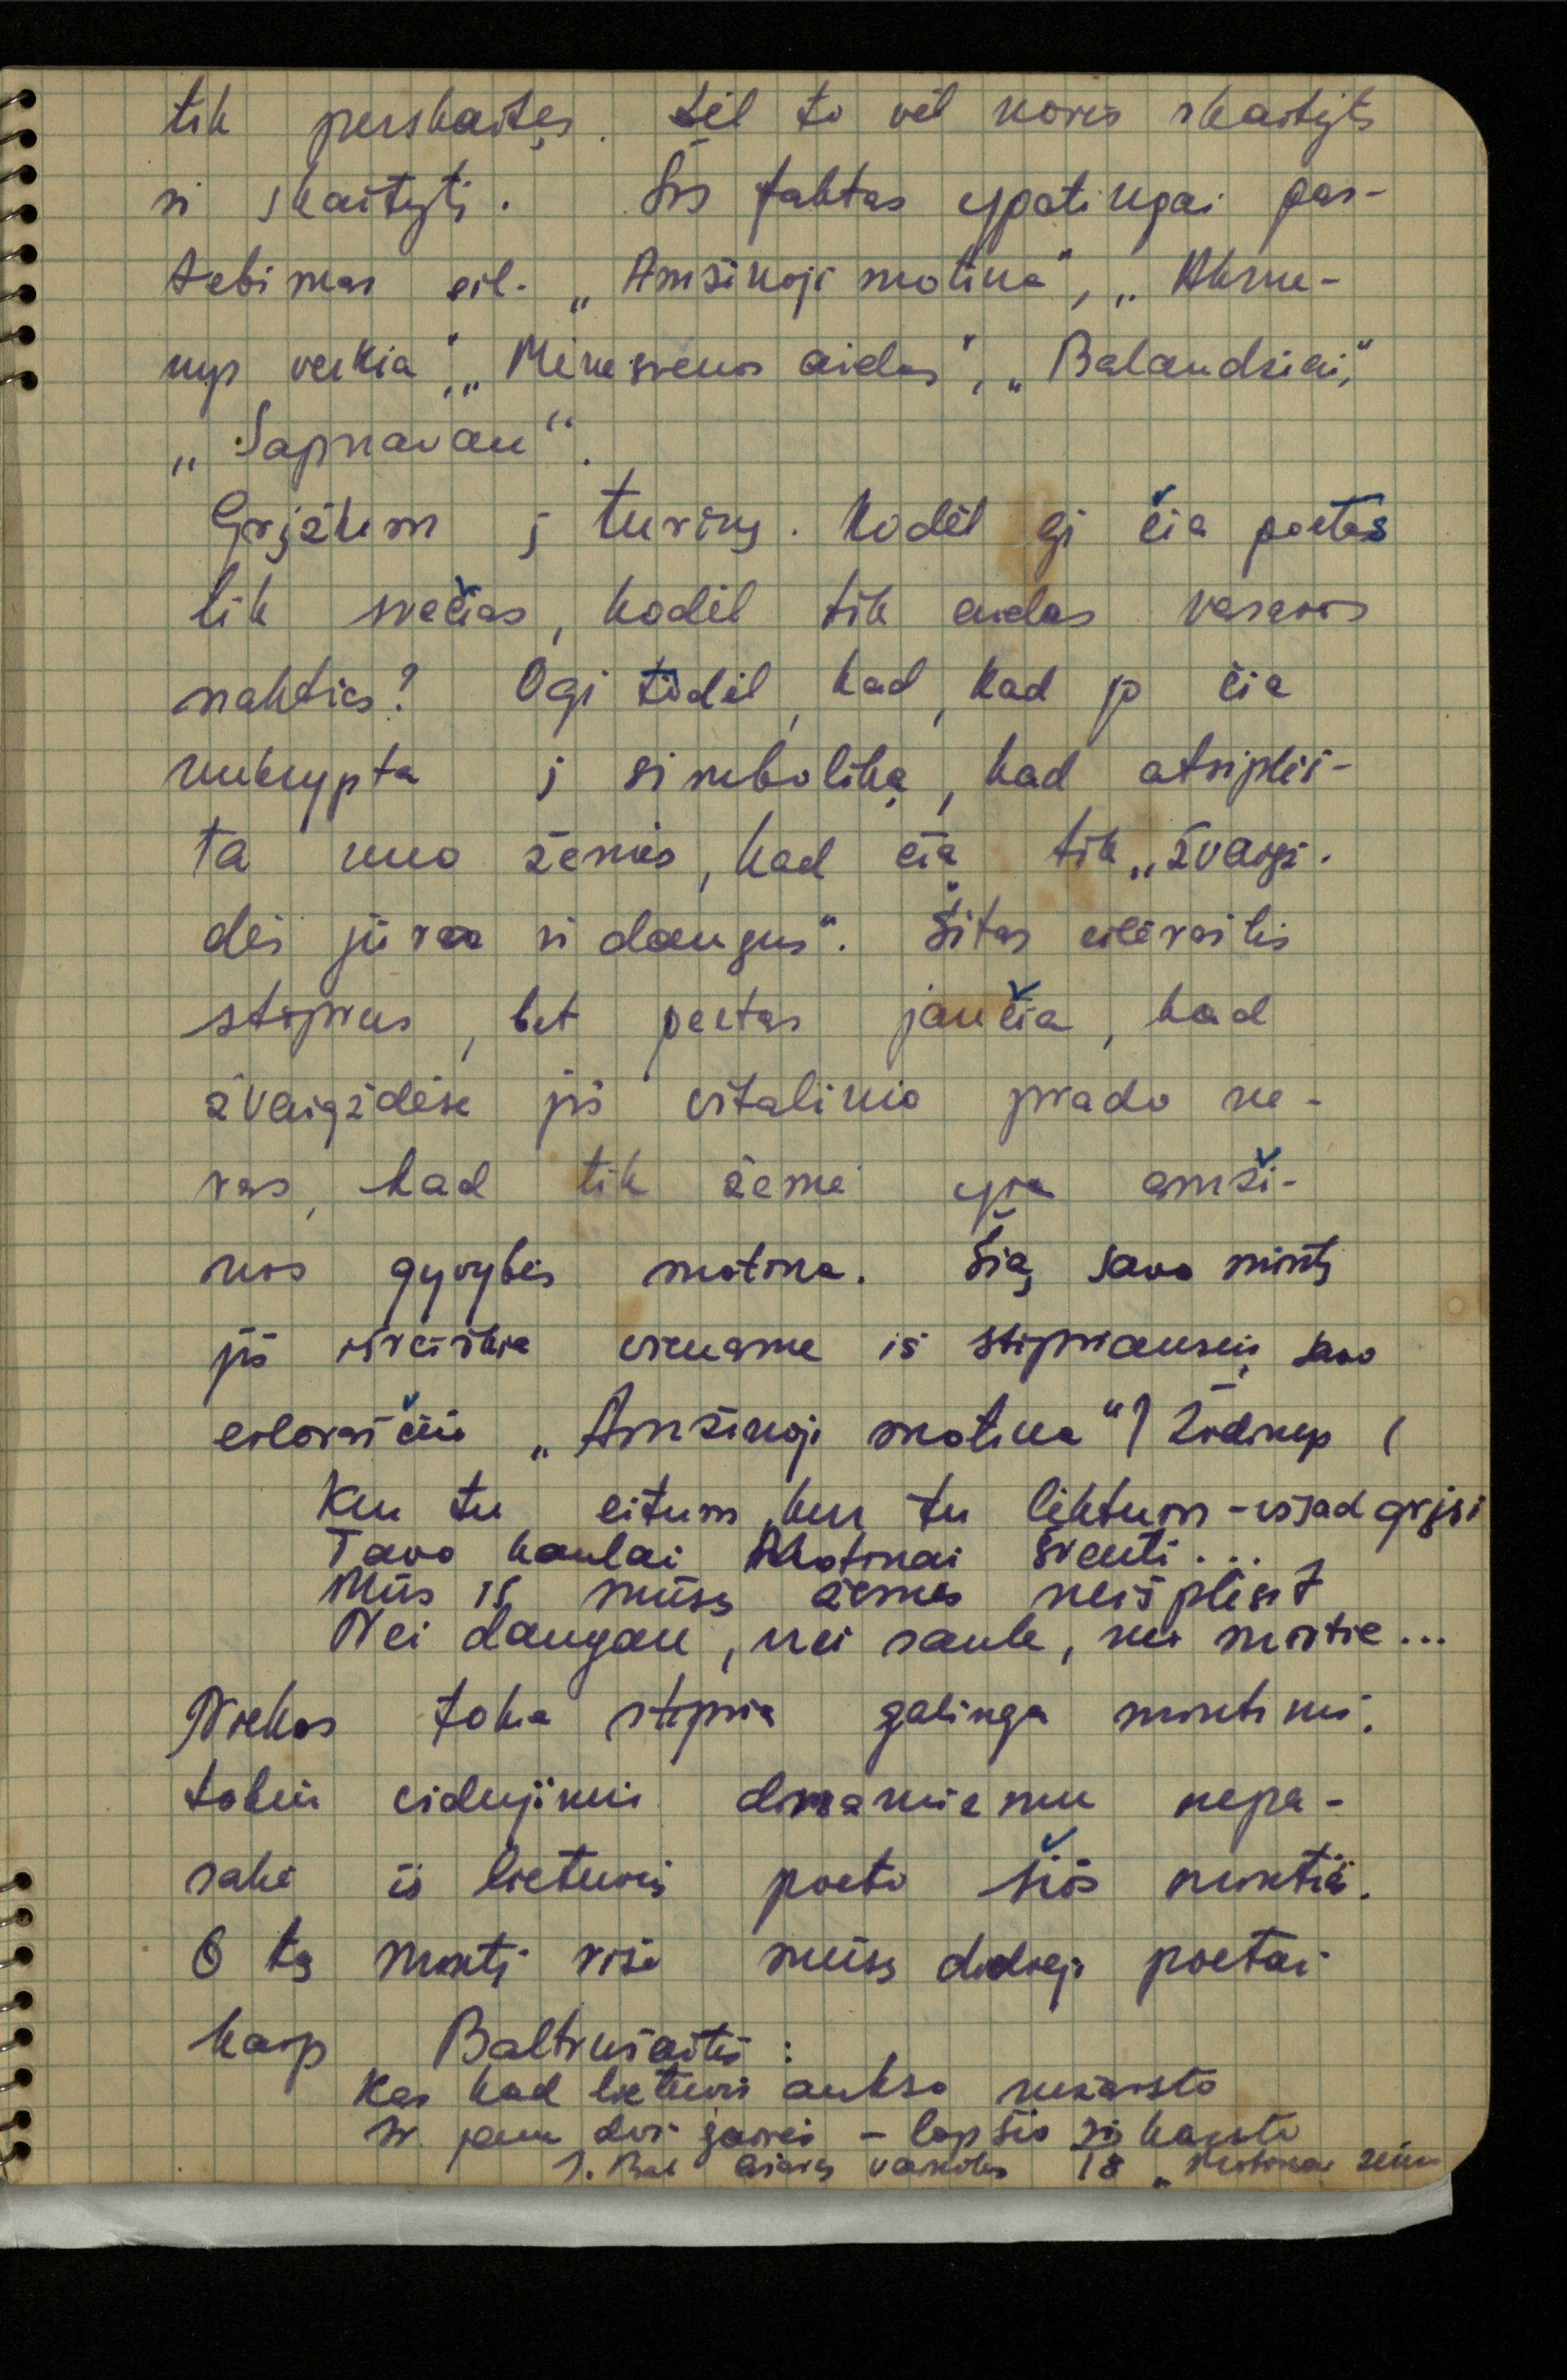 tik perskaitęs. Dėl to vėl noris skaityti
ir skaityti. Šis faktas ypatingai pas-
tebimas eil. „Amžinoji motina“, „Akme-
nys verkia“, „Mėnesienos aidas“, „Balandžiai“,
„Sapnavau“.
Grįžkim į turinį. Kodėl gi čia poetas
tik svečias, kodėl tik aidas vasaros
nakties? Ogi todėl, kad, kad jo čia
nukrypta į simboliką, kad atsiplėš-
ta nuo žemės, kad čia tik „žvaigž-
dės jūra ir dangus“. Šitas eilėraštis
stiprus, bet poetas jaučia, kad
žvaigždėse jis vitalinio prado ne-
ras, kad tik žemė yra amži-
nos gyvybės motina. Šią savo mintį
jis išreiškia viename iš stipriausių savo
eilėraščių „Amžinoji motina“
Kur tu eitum, kur tu liktum – visad grįši
Tavo kaulai Motinai šventi...
Mūs iš mūsų žemės neišplėšit
Nei dangau, nei saule, nei mirtie...
Niekas tokia stipria galinga mintimi,
tokiu vidujiniu dinamizmu nepa-
sakė iš lietuvių poetų šios minties.
O tą mintį rišo mūsų didieji poetai
kaip Baltrušaitis:
Kas kad lietuvis aukso nekarsto
Ir jam dvi gairės – lopšio ir karsto
J. Balt. Ašarų vainikas 18 „Motinai